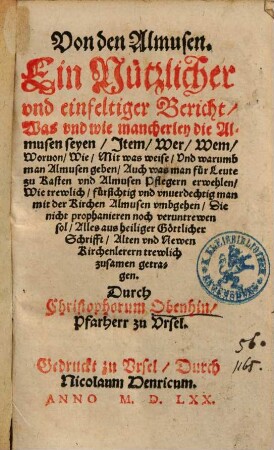 Von den Almusen.
Ein Nützlicher
vnd einfeltiger Bericht/
Was vnd wie mancherley die Al-
musen seyen / Item/ Wer/ Wem/
Woruon/ Wie/ Mit was weise/ Vnd warumb
man Almusen geben/ Auch was man für Leute
zu Kasten vnd Almusen Pflegern erwehlen/
Wie trewlich/ fürsichtig vnd vnuerdechtig man
mit der Kirchen Almusen vmbgehen/ Die
nicht prophanieren noch veruntrewen
sol/ Alles aus heiliger Göttlicher
Schrifft/ Alten vnd Newen
Kirchenlerern trewlich
zusamen getra-
gen.
Durch
Christophorum Obenhin/
Pfarherr zu Vrsel.
56.
1165.
Gedruckt zu Vrsel / Durch
Nicolaum Henricum.
ANNO M. D. LXX.